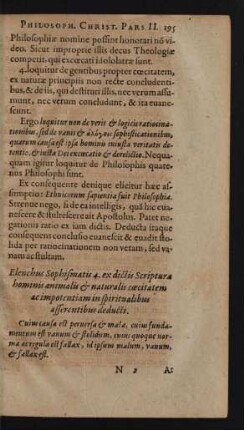 PHILOSOPH. CHRIST. PARS II. 195
Philosophiæ nomine possint honorari nõ vi-
deo. Sicut improprie illis decus Theologiæ
competit, qui excæcati idololatræ sunt.
4. loquitur de gentibus propter cœcitatem,
ex naturæ principiis non recte concludenti-
bus, & de iis, qui destituti illis, nec verum assu-
munt, nec verum concludunt, & ita euane-
scunt.
Ergo loquitur non de veris & logicis ratiocina-
tionibus, sed de vanis & ἀλόγοις sophisticationibus,
quarum causa est ipsa hominū iniusta veritatis de-
tentio, & iusta Dei excæcatio & derelictio. Nequa-
quam igitur loquitur de Philosophis quate-
nus Philosophi sunt.
Ex consequente denique elicitur hæc as-
sumptio: Ethnicorum sapientia fuit Philosophia.
Strenue nego, si de ea intelligis, quâ hic eua-
nescere & stultescere ait Apostolus. Patet ne-
gationis ratio ex iam dictis. Deducta itaque
consequens conclusio euanescit & euadit stol-
ida per ratiocinationem non veram, sed va-
nam ac stultam.
Elenchus Sophismatis 4. ex dictis Scripturæ
hominis animalis & naturalis cæcitatem
ac impotentiam in spiritualibus
asserentibus deducti.
Cuius causa est peruersa & mala, cuius funda-
mentum est vanum & stolidum, cuius quoque nor-
ma ac regula est fallax, id ipsum malum, vanum,
& fallax est.
N 2 A: